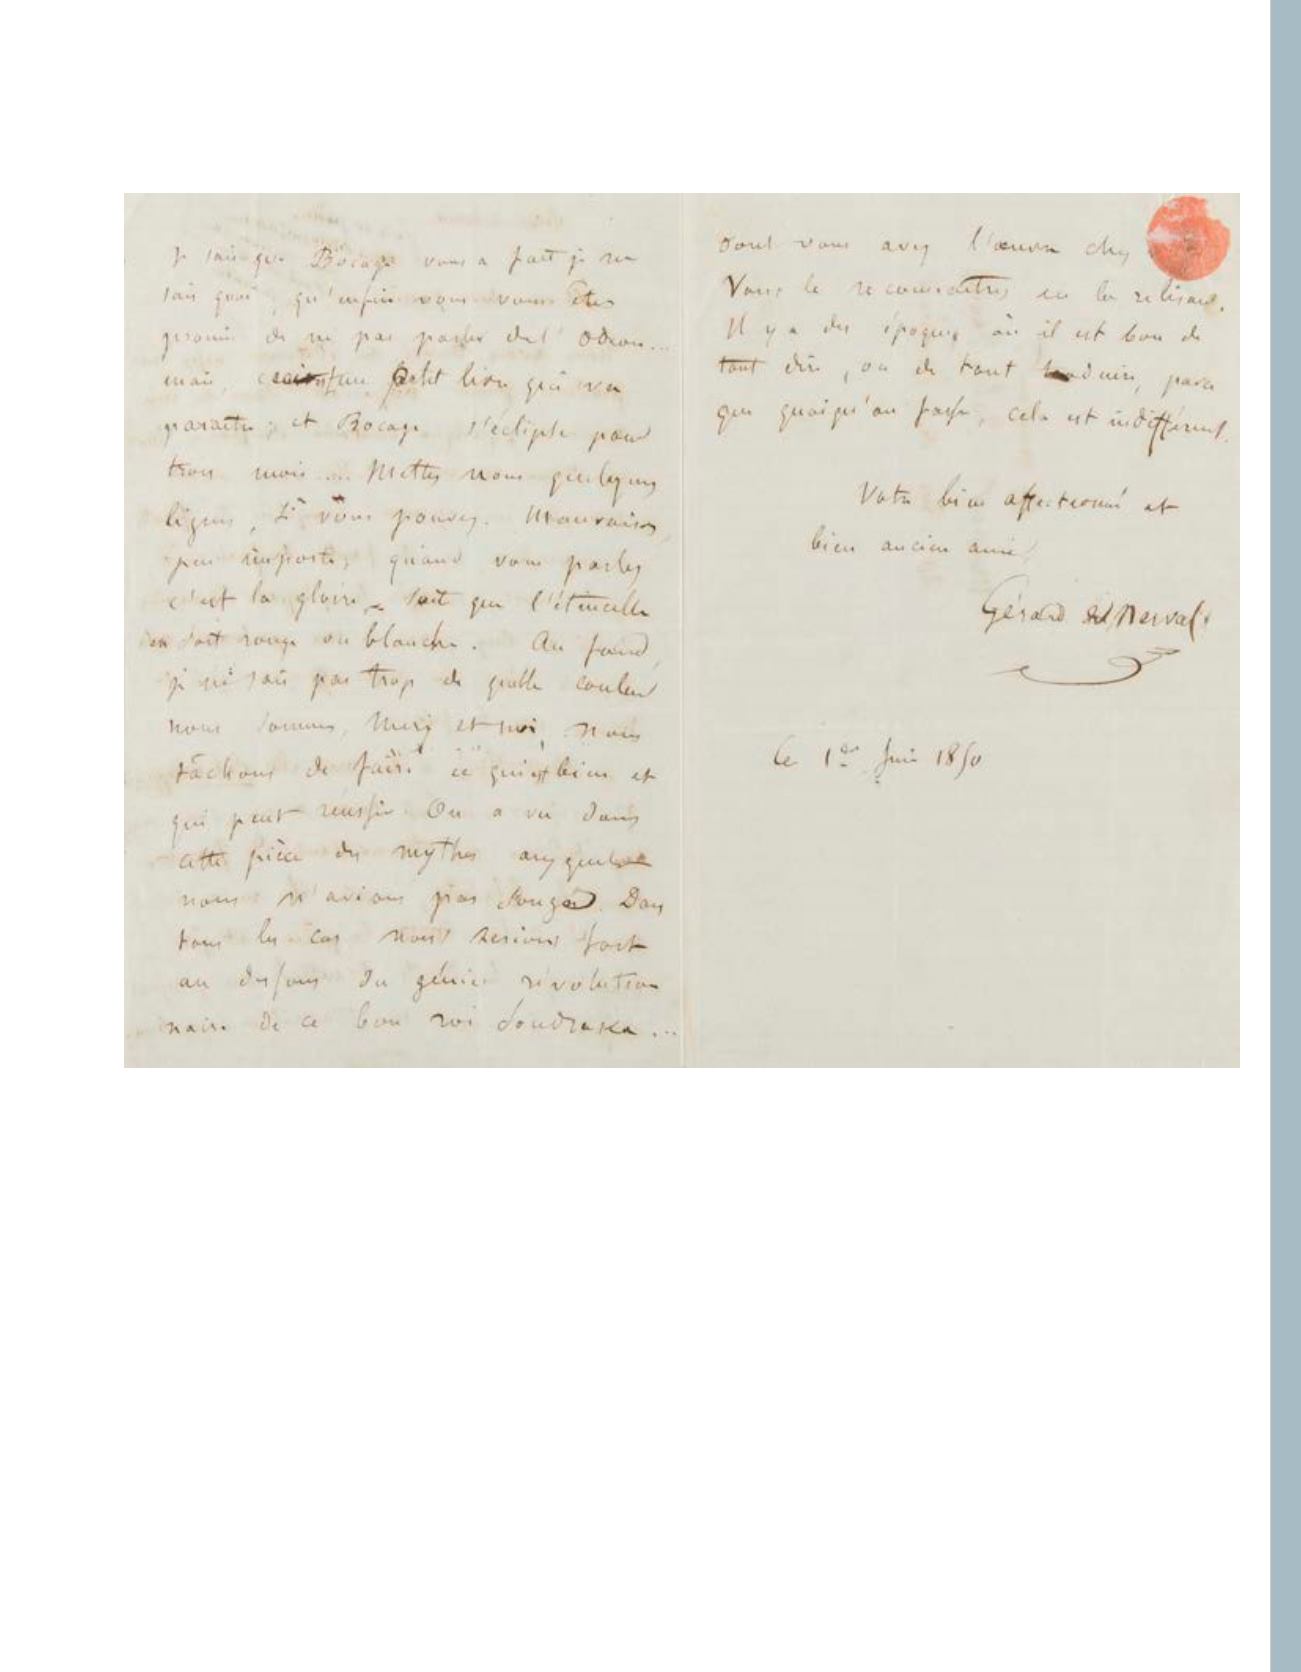 Je sais que Bocage vous a fait je ne
sais quoi, qu'enfin vous vous êtes
promis de ne pas parler de l'Odéon...
mais, ceci est un petit livre qui va
paraître, et Bocage s'éclipse pour
trois mois... Mettez nous quelques
lignes, si vous pouvez. Mauvaises,
peu importe, quand vous parlez
c'est la gloire – soit que l'étincelle
en soit rouge ou blanche. Au fond,
je ne sais pas trop de quelle couleur
nous sommes, Mery et moi, nous
tâchons de faire ce qui est bien et
qui peut réussir. On a vu dans
cette pièce des mythes auxquels
nous n'avions pas songé. Dans
tous les cas nous serions fort
au dessous du génie révolution
naire de ce bon roi Soudraka...
dont vous avez l'œuvre chez
Vous le reconnaîtrez en la relisant.
Il y a des époques où il est bon de
tout dire, ou de tout traduire, parce
que quoiqu'on fasse, cela est indifférent.
Votre bien affectionné et
bien ancien ami,
Gérard de Nerval
Ce 1er Juin 1850